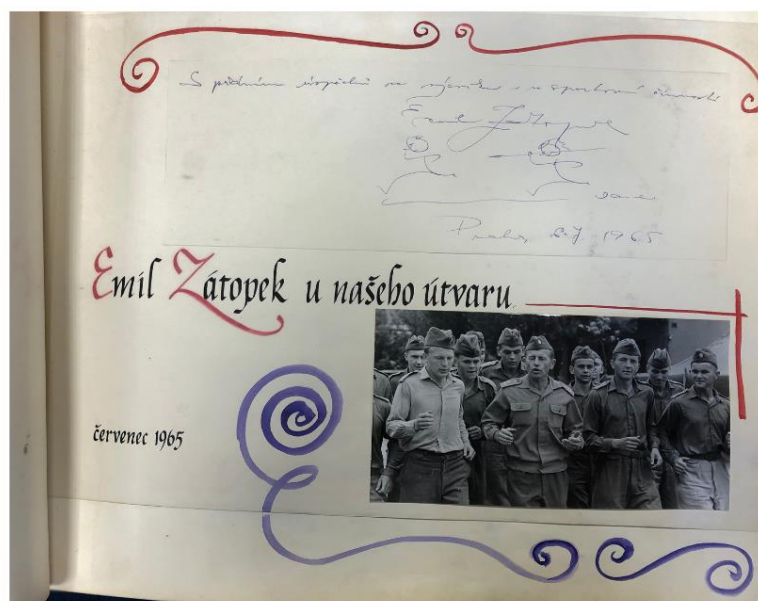 S přáním úspěchů ve výcviku i ve sportovní činnosti
Emil Zátopek
Dana
Praha, 1965
Emil Zátopek u našeho útvaru
červenec 1965